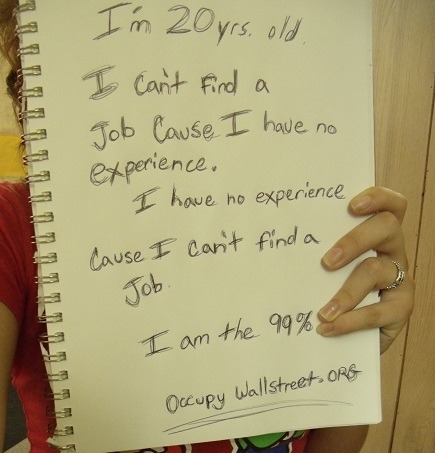 I'm 20yrs. old.
I can't find a
Job Cause I have no
experience.
I have no experience
Cause I can't find a
Job.
I am the 99%
Occupy Wallstreet.ORG